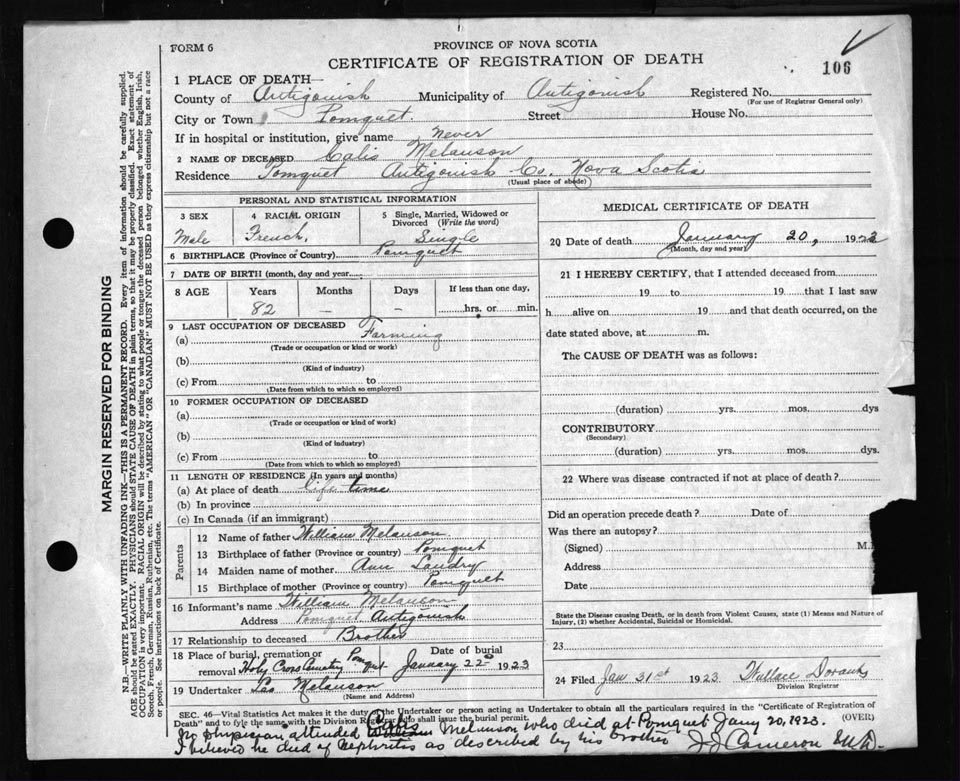 FORM 6
PROVINCE OF NOVA SCOTIA
CERTIFICATE OF REGISTRATION OF DEATH
106
1 PLACE OF DEATH—
County of Antigonish Municipality of Antigonish Registered No.
(For use of Registrar General only)
City or Town Pomquet. Street House No.
If in hospital or institution, give name never
2 NAME OF DECEASED Calis Melanson
Residence Pomquet Antigonish Co. Nova Scotia
(Usual place of abode)
PERSONAL AND STATISTICAL INFORMATION
3 SEX 4 RACIAL ORIGIN 5 Single, Married, Widowed or Divorced (Write the word)
Male French, Single
6 BIRTHPLACE (Province or Country) Pomquet
7 DATE OF BIRTH (month, day and year)
8 AGE Years Months Days If less than one day,
82 – – hrs. or min.
9 LAST OCCUPATION OF DECEASED
(a) Farming
(Trade or occupation or kind or work)
(b)
(Kind of industry)
(c) From to
(Date from which to which so employed)
10 FORMER OCCUPATION OF DECEASED
(a)
(Trade or occupation or kind of work)
(b)
(Kind of industry)
(c) From to
(Date from which to which so employed)
11 LENGTH OF RESIDENCE (In years and months)
(a) At place of death life time
(b) In province
(c) In Canada (if an immigrant)
Parents
12 Name of father William Melanson
13 Birthplace of father (Province or country) Pomquet
14 Maiden name of mother Ann Landry
15 Birthplace of mother (Province or country) Pomquet
16 Informant's name William Melanson
Address Pomquet Antigonish
17 Relationship to deceased Brother
18 Place of burial, cremation or removal Holy Cross Cemetry Pomquet
Date of burial January 22 1923
19 Undertaker Melanson
(Name and Address)
MEDICAL CERTIFICATE OF DEATH
20 Date of death January 20, 1923
(Month, day and year)
21 I HEREBY CERTIFY, that I attended deceased from
19 to 19 that I last saw
h alive on 19 and that death occurred, on the
date stated above, at m.
The CAUSE OF DEATH was as follows:
(duration) yrs. mos. dys
CONTRIBUTORY
(Secondary)
(duration) yrs. mos. dys.
22 Where was disease contracted if not at place of death?
Did an operation precede death? Date of
Was there an autopsy?
(Signed) M.
Address
Date
State the Disease causing Death, or in death from Violent Causes, state (1) Means and Nature of
Injury, (2) whether Accidental, Suicidal or Homicidal.
23
24 Filed Jan 31st 1923. Wallace
Division Registrar
SEC. 46—Vital Statistics Act makes it the duty of the Undertaker or person acting as Undertaker to obtain all the particulars required in the "Certificate of Registration of
Death" and to file the same with the Division Registrar who shall issue the burial permit. (OVER)
No physician attended William Calis Melanson who died at Pomquet Jany 20, 1923.
I believe he died of Nephritis as described by his brother J J Cameron M.D.
MARGIN RESERVED FOR BINDING
N.B.—WRITE PLAINLY WITH UNFADING INK—THIS IS A PERMANENT RECORD. Every item of information should be carefully supplied.
AGE should be stated EXACTLY. PHYSICIANS should STATE CAUSE OF DEATH in plain terms, so that it may be properly classified. Exact statement of
OCCUPATION is very important. RACIAL ORIGIN will be described by stating to what people or tongue the deceased person belonged whether English, Irish,
Scotch, French, German, Russian, Ruthenian, etc. The terms "AMERICAN" OR "CANADIAN" MUST NOT BE USED as they express citizenship but not a race
or people. See instructions on back of Certificate.